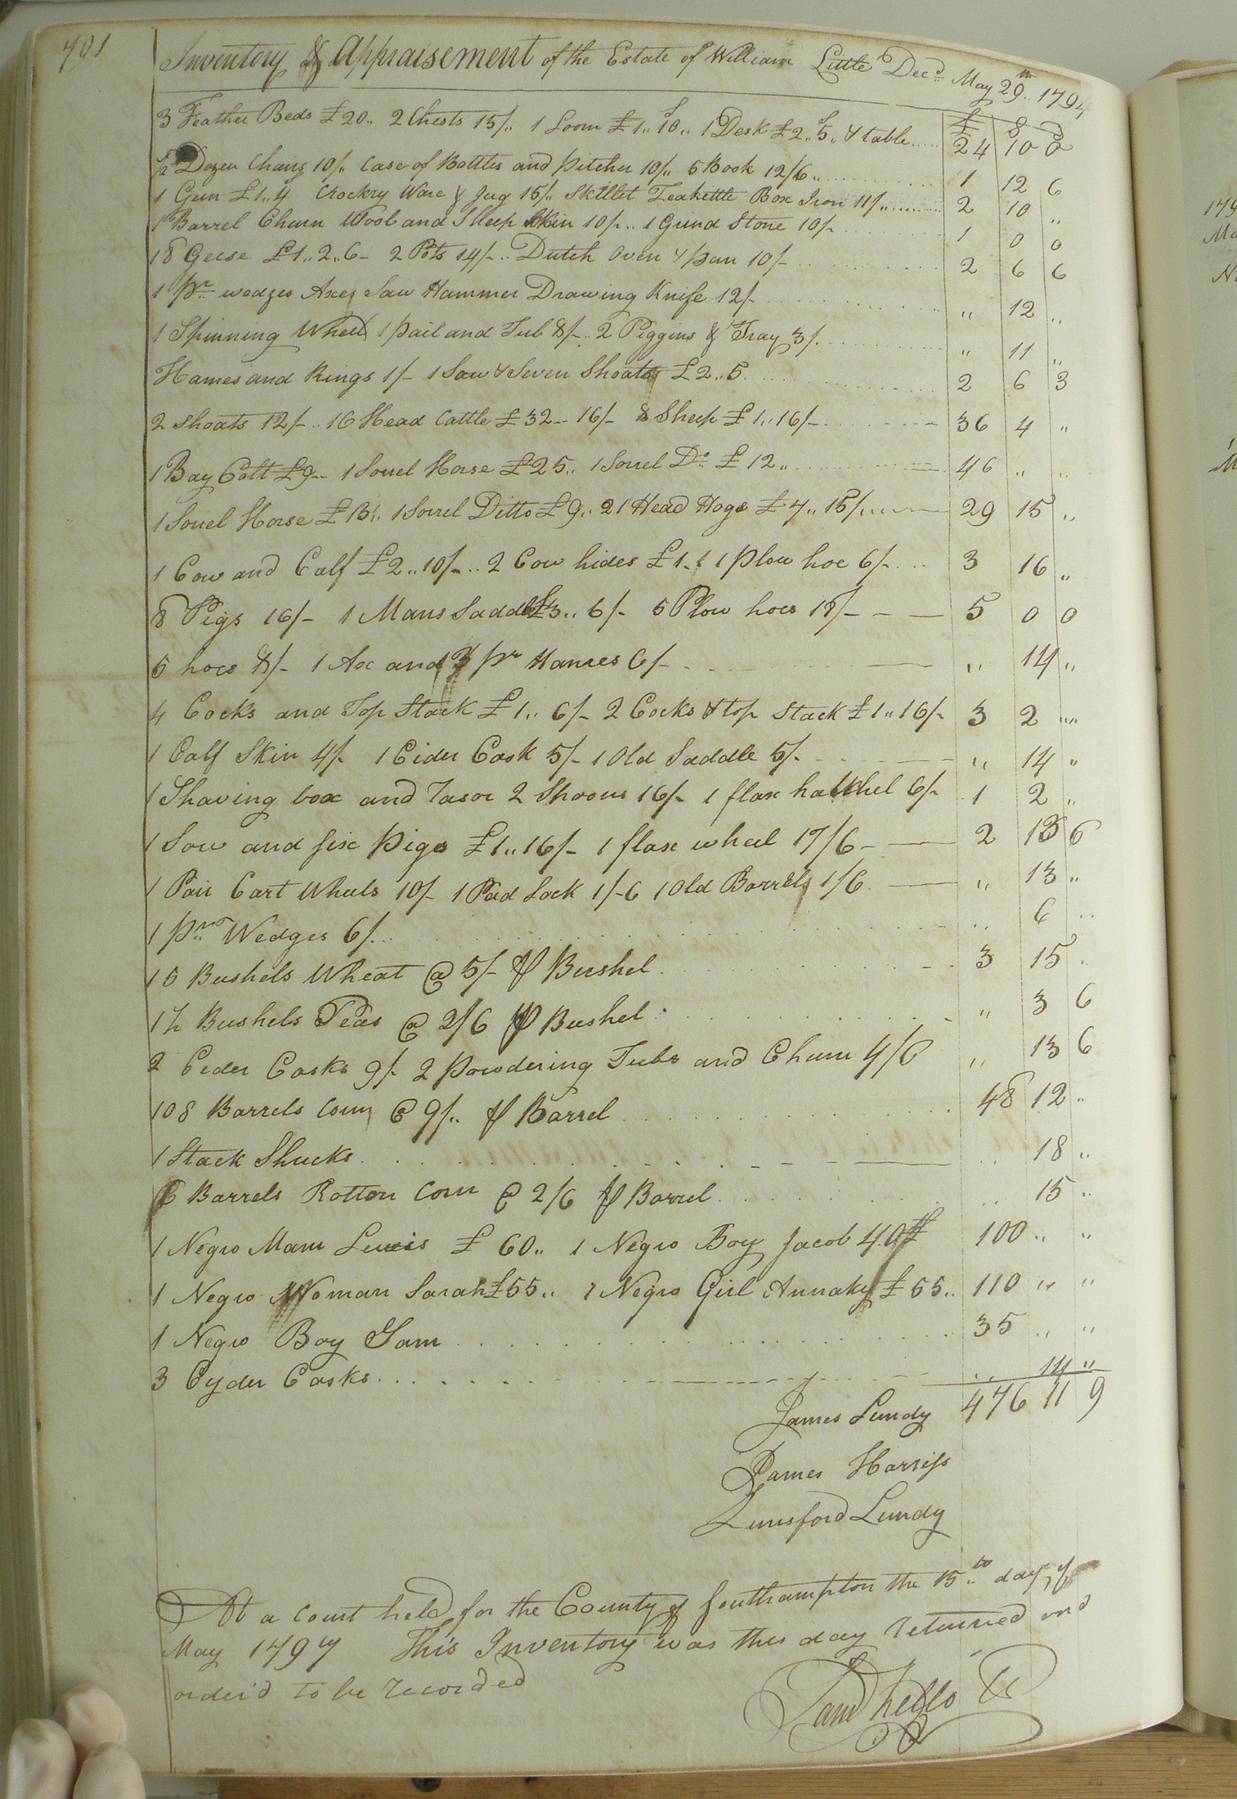 401
Inventory & Appraisement of the Estate of William Little Decd May 29th 1794
£ S D
3 Feather Beds £20,, 2 Chests 15/,, 1 Loom £1,, 10,, 1 Desk £2,, 5,, & table 24 10 0
1/2 Dozen Chairs 10/,, Case of Bottles and Pitcher 10/,, 5 Book 12/6,, 1 12 6
1 Gun £1,, 4 Crockry Ware & Jug 15/,, Skillet Teakettle Box Iron 11/,, 2 10 ,,
1 Barrel Churn Wool and Sheep Skin 10/,, 1 Grind Stone 10/- 1 0 0
18 Geese £1,, 2,, 6- 2 Pots 14/-,, Dutch Oven & pan 10/- 2 6 6
1 pr wedges Axes Saw Hammer Drawing Knife 12/- ,, 12 ,,
1 Spinning Wheel 1 pail and Tub 8/- 2 Piggins & Tray 3/. ,, 11 ,,
Hames and Rings 1/- 1 Sow & Seven Shoats £2,, 5 2 6 3
2 Shoats 12/-,, 16 Head Cattle £32-- 16/- 8 Sheep £1,, 16/- 36 4 ,,
1 Bay Colt £9-- 1 Sorrel Horse £25,, 1 Sorrel Do £12,, 46 ,, ,,
1 Sorrel Horse £15,, 1 Sorrel Ditto £9,, 21 Head Hogs £4,, 15/ 29 15 ,,
1 Cow and Calf £2,, 10/-,, 2 Cow hides £1,, 1 plow hoe 6/- 3 16 ,,
8 Pigs 16/- 1 Mans Saddle £3,, 6/- 5 Plow hoes 18/- 5 0 0
5 hoes 8/- 1 Ax and 3 pr Hames 6/- ,, 14 ,,
4 Cocks and Top Stack £1,, 6/- 2 Cocks & top Stack £1,, 16/- 3 2 ,,
1 Calf Skin 4/- 1 Cider Cask 5/- 1 Old Saddle 5/- ,, 14 ,,
1 Shaving box and Rasor 2 Spoons 16/- 1 flax hatchel 6/- 1 2 ,,
1 Sow and six Pigs £1,, 16/- 1 flax wheel 17/6- 2 13 6
1 Pair Cart Wheels 10/- 1 Pad Lock 1/-6 1 Old Barrels 1/6 ,, 13 ,,
1 pr Wedges 6/. ,, 6 ,,
15 Bushels Wheat @ 5/- ⅌ Bushel 3 15 ,,
1½ Bushels Peas @ 2/6 ⅌ Bushel ,, 3 6
2 Ceder Casks 9/- 2 powdering Tubs and Churn 4/6 ,, 13 6
108 Barrels Corn @ 9/,, ⅌ Barrel 48 12 ,,
1 Stack Shucks ,, 18 ,,
6 Barrels Rotton Corn @ 2/6 ⅌ Barrel ,, 15 ,,
1 Negro Man Lewis £60,, 1 Negro Boy Jacob 40£ 100 ,, ,,
1 Negro Woman Sarah £55,, 1 Negro Girl Annaky £55,, 110 ,, ,,
1 Negro Boy Sam 35 ,, ,,
3 Cyder Casks ,, 14 ,,
476 11 9
James Lundy
James Harriss
Lunsford Lundy
At a Court held for the County of Southampton the 15th day of
May 1794 This Inventory was this day returned and
order'd to be recorded